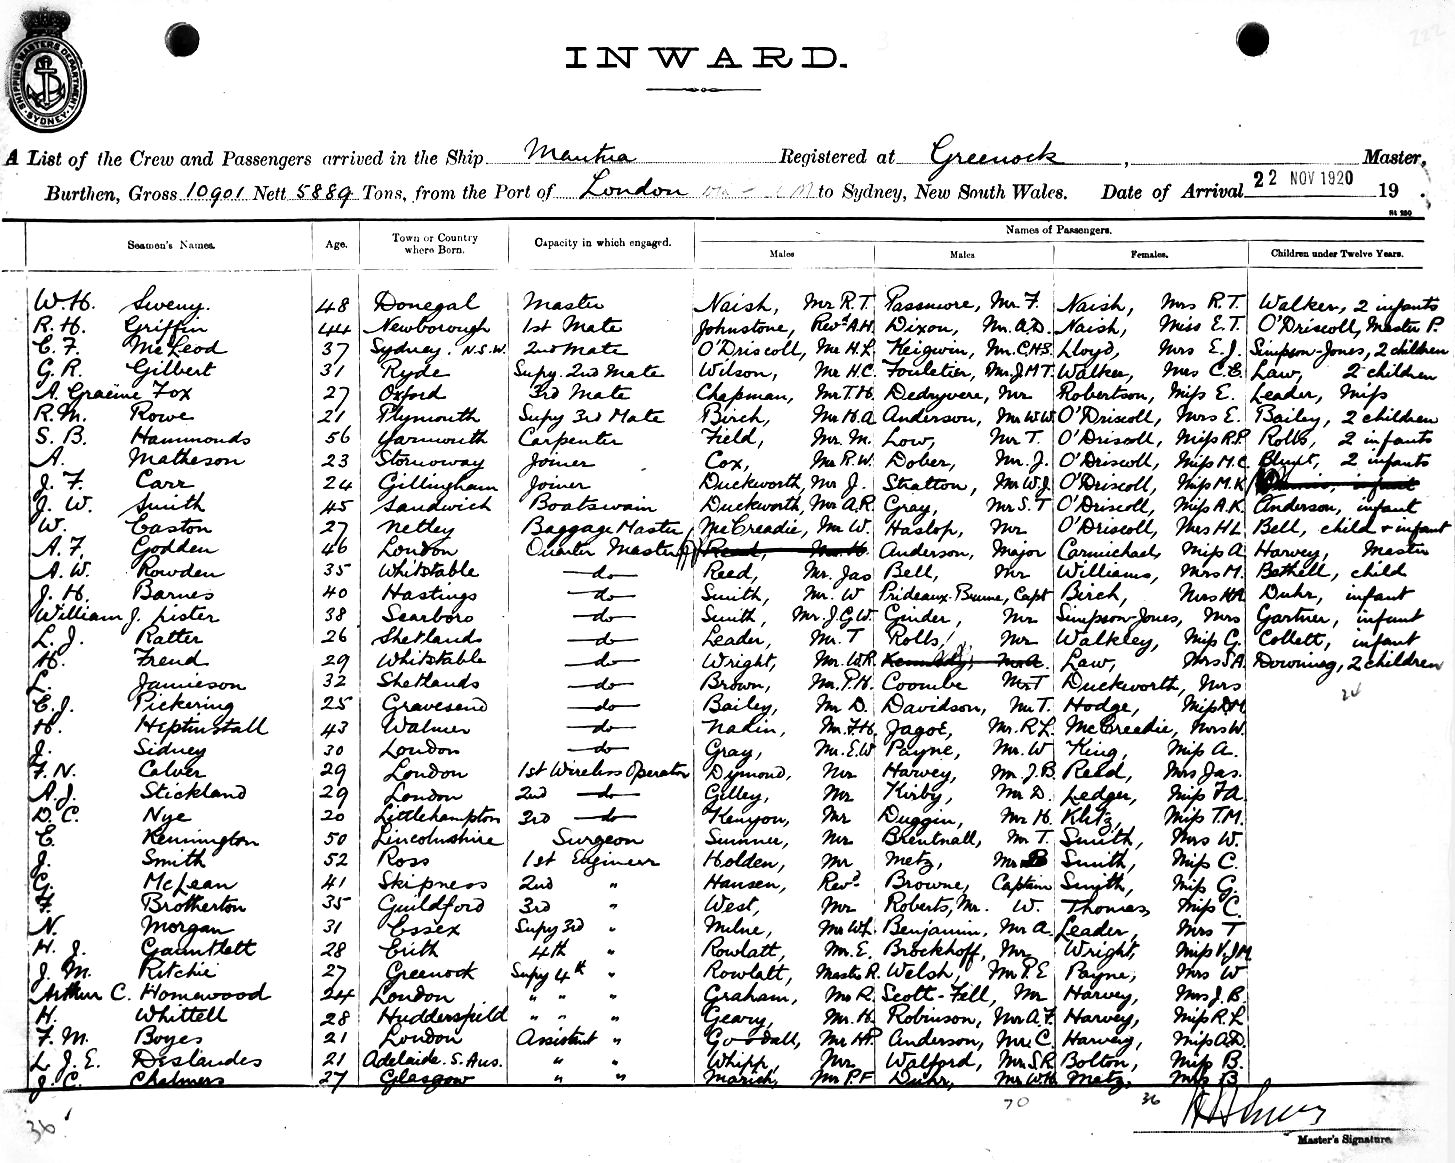 SHIPPING MASTERS DEPARTMENT SYDNEY
INWARD.
A List of the Crew and Passengers arrived in the Ship Mantua Registered at Greenock , Master,
Burthen, Gross 10901 Nett 5889 Tons, from the Port of London to Sydney, New South Wales. Date of Arrival 22 NOV 1920 19 .
Seamen's Names. Age. Town or Country where Born. Capacity in which engaged. Names of Passengers.
Males Males Females. Children under Twelve Years.
W.H. Sweny. 48 Donegal Master Naish, Mr R.T. Passmore, Mr F. Naish, Mrs R.T. Walker, 2 infants
R.H. Griffin 44 Newborough 1st Mate Johnstone, Revd A.H. Dixon, Mr A.D. Naish, Miss E.T. O'Driscoll, Master P.
C.F. McLeod 37 Sydney. N.S.W. 2nd Mate O'Driscoll, Mr H.L. Keigwin, Mr C.H.S. Lloyd, Mrs E.J. Simpson-Jones, 2 children
G.R. Gilbert 31 Ryde Supy. 2nd Mate Wilson, Mr H.C. Fouletier, Mr J.M.T. Walker, Mrs C.E. Law, 2 children
A. Graeme Fox 27 Oxford 3rd Mate Chapman, Mr T.H. Dedryvere, Mr Robertson, Miss E. Leader, Miss
R.M. Rowe 21 Plymouth Supy 3rd Mate Birch, Mr H.A. Anderson, Mr W.W. O'Driscoll, Mrs E. Bailey, 2 children
S.B. Hammonds 56 Yarmouth Carpenter Field, Mr M. Low, Mr T. O'Driscoll, Miss R.P. Rolls, 2 infants
A. Matheson 23 Stornoway Joiner Cox, Mr R.W. Dober, Mr J. O'Driscoll, Miss M.C. Blunt, 2 infants
J.F. Carr 24 Gillingham Joiner Duckworth, Mr J. Stratton, Mr W.J. O'Driscoll, Miss M.K. infant
J.W. Smith 45 Sandwich Boatswain Duckworth, Mr A.R. Gray, Mr S.T. O'Driscoll, Miss A.K. Anderson, infant
W. Easton 27 Netley Baggage Master McCreadie, Mr W. Haslop, Mr O'Driscoll, Mrs H.L. Bell, child + infant
A.F. Godden 46 London Quarter Master Reed, Anderson, Major Carmichael, Miss A. Harvey, Master
A.W. Rowden 35 Whitstable —do— Reed, Mr. Jas Bell, Mr Williams, Mrs M. Bethell, child
J.H. Barnes 40 Hastings —do— Smith, Mr. W Prideaux-Brune, Capt Birch, Mrs H.A. Duhr, infant
William J. Lister 38 Scarboro —do— Smith, Mr. J.G.W. Ginder, Mr Simpson-Jones, Mrs Gartner, infant
L.J. Ratter 26 Shetlands —do— Leader, Mr. T Rolls, Mr Walkley, Miss G. Collett, infant
H. Freud 29 Whitstable —do— Wright, Mr. W.R. Kennedy, Mr A. Law, Mrs S.A. Downing, 2 children
L. Jamieson 32 Shetlands —do— Brown, Mr. P.H. Coombe Mr T Duckworth, Mrs 24
E.J. Pickering 25 Gravesend —do— Bailey, Mr D. Davidson, Mr T. Hodge, Miss D.M.
H. Heptinstall 43 Walmer —do— Nadin, Mr. F.H. Jagoe, Mr. R.L. McCreadie, Mrs W.
J. Sidney 30 London —do— Gray, Mr. E.W. Payne, Mr. W King, Miss A.
F.N. Calver 29 London 1st Wireless Operator Dymond, Mr Harvey, Mr J.B. Reed, Mrs Jas.
A.J. Stickland 29 London 2nd —do— Gilley, Mr Kirby, Mr D. Ledger, Miss F.A.
D.C. Nye 20 Littlehampton 3rd —do— Kenyon, Mr Duggin, Mr H. Klitz, Miss T.M.
E. Kennington 50 Lincolnshire Surgeon Sumner, Mr Brentnall, Mr T. Smith, Mrs W.
J. Smith 52 Ross 1st Engineer Holden, Mr Metz, Mr B Smith, Miss C.
G. McLean 41 Skipness 2nd " Hansen, Revd Browne, Captain Smith, Miss G.
F. Brotherton 35 Guildford 3rd " West, Mr Roberts, Mr. W. Thomas, Miss C.
N. Morgan 31 Essex Supy 3rd " Milne, Mr W.L. Benjamin, Mr A. Leader, Mrs T
H.J. Gauntlett 28 Erith 4th " Rowlatt, Mr. E. Brockhoff, Mr Wright, Miss V.J.M.
J.M. Ritchie 27 Greenock Supy 4th " Rowlatt, Master R. Welsh, Mr P.E Payne, Mrs W
Arthur C. Homewood 24 London " " " Graham, Mr R. Scott-Fell, Mr Harvey, Mrs J.B.
H. Whittell 28 Huddersfield " " " Geary, Mr. H. Robinson, Mr A.F. Harvey, Miss R.L.
F.M. Boyes 21 London Assistant " Goodall, Mr H.P. Anderson, Mr C. Harvey, Miss A.D.
L.J.E. Deslandes 21 Adelaide. S. Aus. " " Whipp, Mr Walford, Mr S.R. Bolton, Miss B.
J.C. Chalmers 27 Glasgow " " Marich, Mr P.F Duhr, Mr W.H. Metz, Mrs B
36 70 36
Master's Signature.